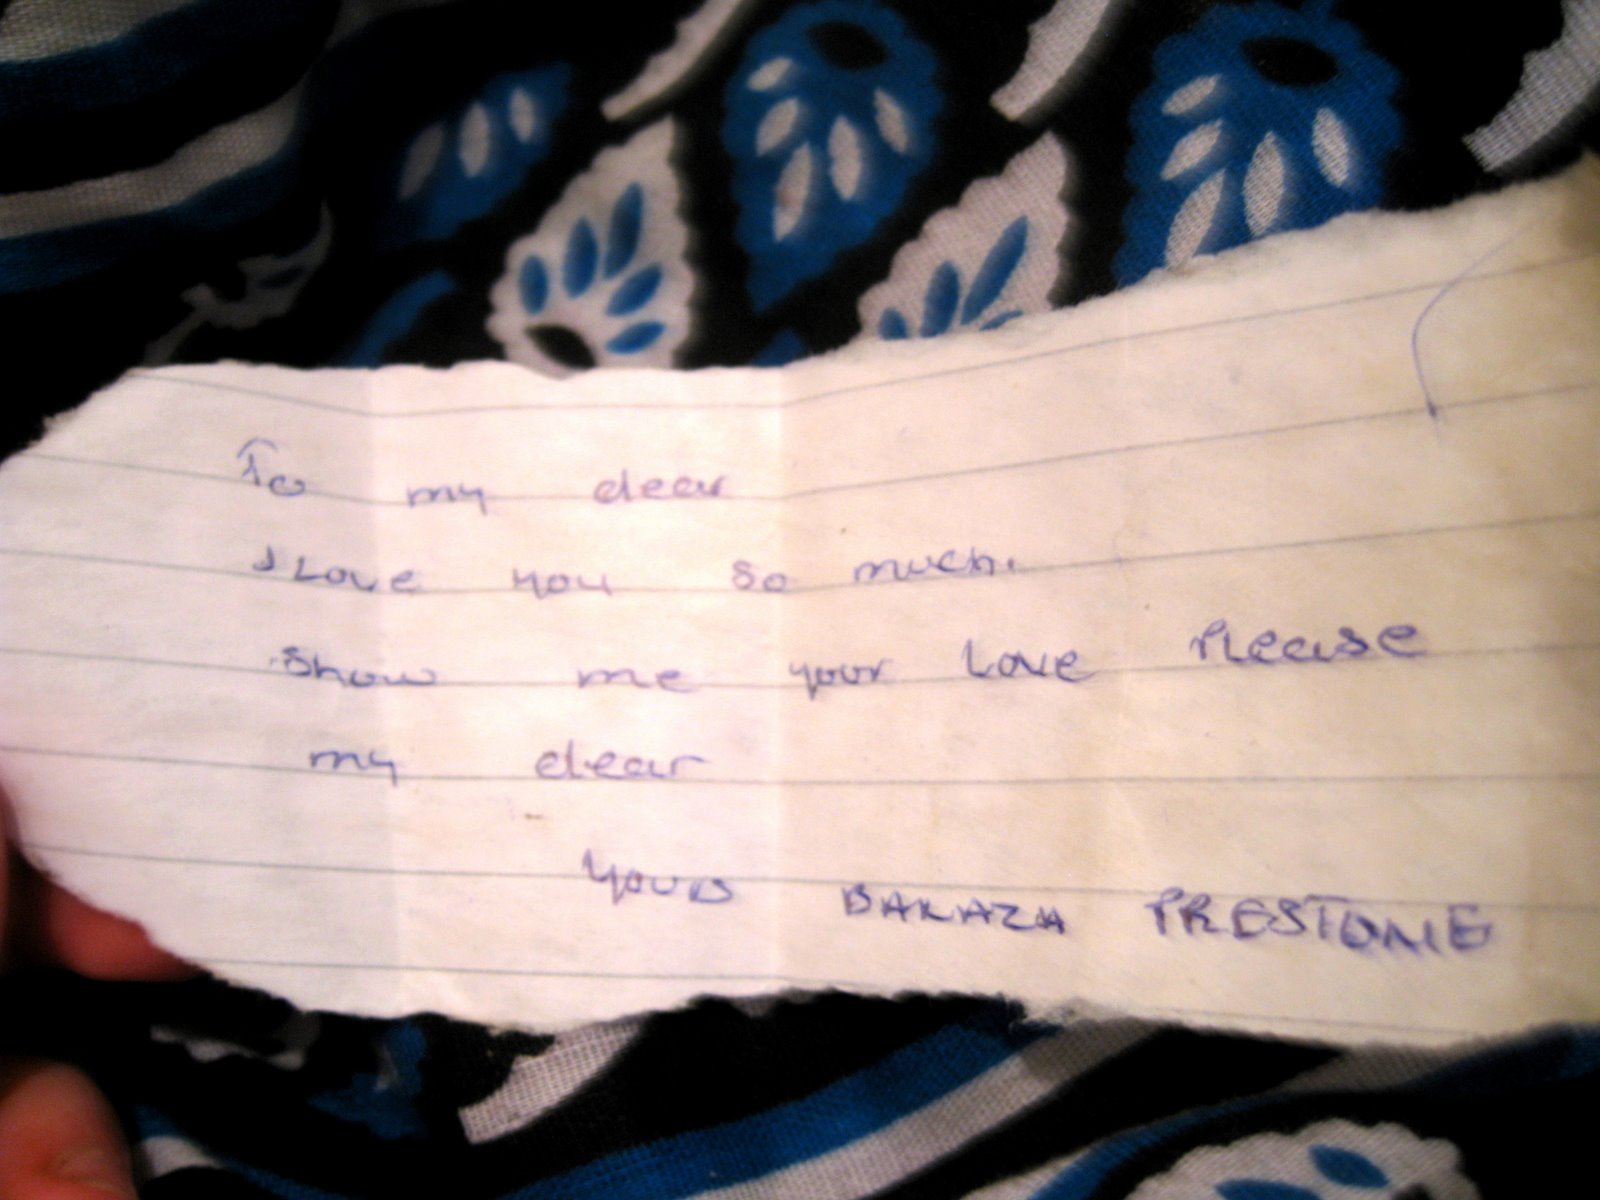 To my dear
I Love you so much.
Show me your Love Please
my dear
Yours BARAZA PRESTONE